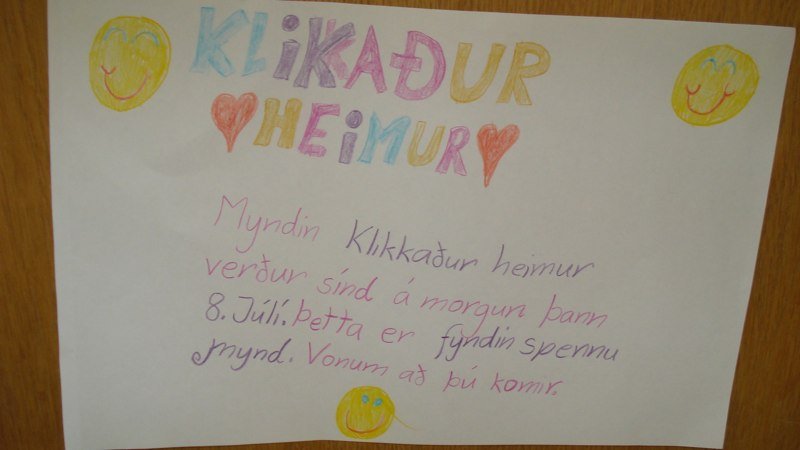 KLIKKAÐUR
HEIMUR
Myndin Klikkaður heimur
verður sínd á morgun þann
8. Júlí. Þetta er fyndin spennu
mynd. Vonum að þú komir.